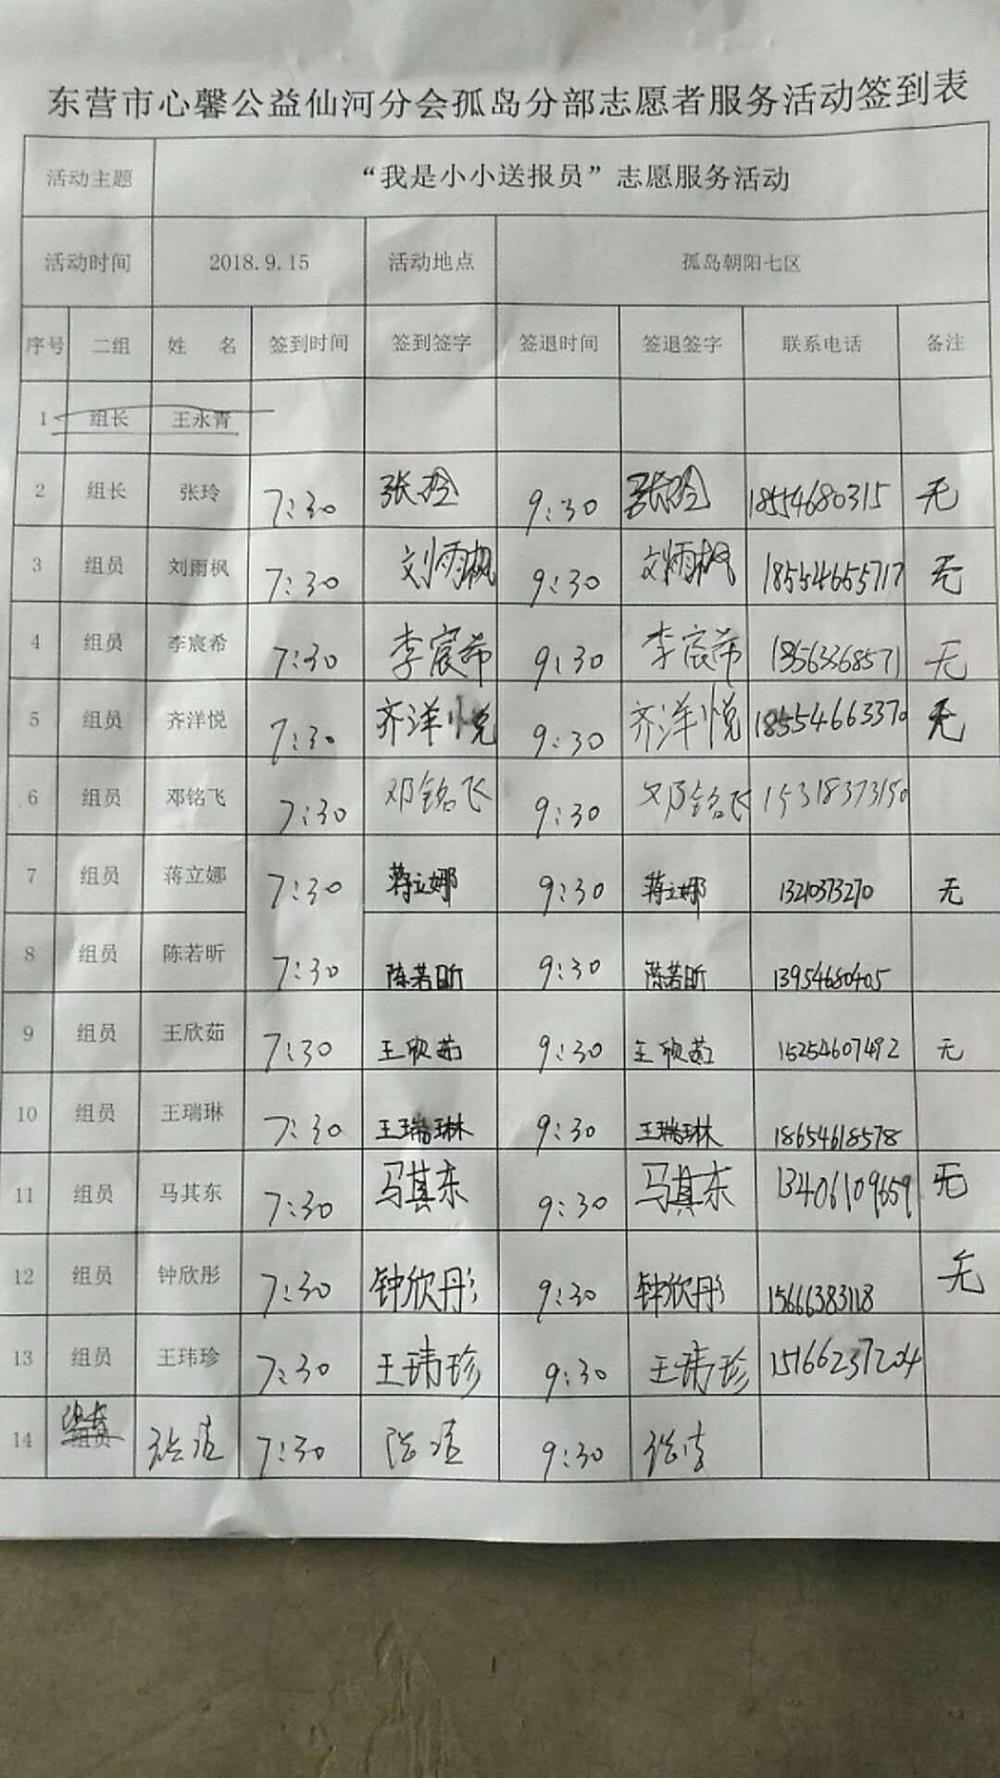 东营市心馨公益仙河分会孤岛分部志愿者服务活动签到表
活动主题 “我是小小送报员”志愿服务活动
活动时间 2018.9.15 活动地点 孤岛朝阳七区
序号 二组 姓 名 签到时间 签到签字 签退时间 签退签字 联系电话 备注
1 组长 王永青
2 组长 张玲 7:30 张玲 9:30 张玲 18554680315 无
3 组员 刘雨枫 7:30 刘雨枫 9:30 刘雨枫 18554655717 无
4 组员 李宸希 7:30 李宸希 9:30 李宸希 18563368571 无
5 组员 齐洋悦 7:30 齐洋悦 9:30 齐洋悦 18554663370 无
6 组员 邓铭飞 7:30 邓铭飞 9:30 邓铭飞 15318373150
7 组员 蒋立娜 7:30 蒋立娜 9:30 蒋立娜 13210373270 无
8 组员 陈若昕 7:30 陈若昕 9:30 陈若昕 13954680405
9 组员 王欣茹 7:30 王欣茹 9:30 王欣茹 15254607492 无
10 组员 王瑞琳 7:30 王瑞琳 9:30 王瑞琳 18654618578
11 组员 马其东 7:30 马其东 9:30 马其东 13406109659 无
12 组员 钟欣彤 7:30 钟欣彤 9:30 钟欣彤 15666383118 无
13 组员 王玮珍 7:30 王玮珍 9:30 王玮珍 15166237204
14 组员 7:30 9:30